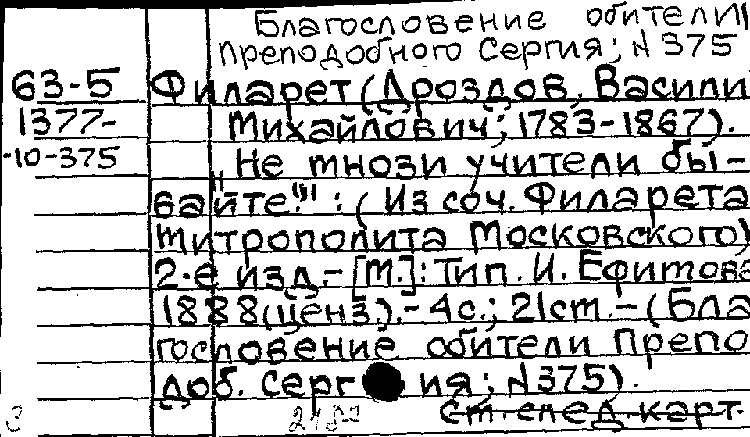 Благословение обители
Преподобного Сергия; N 375
63-5 Филарет (Дроздов, Васили
1377- Михайлович; 1783-1867).
-10-375 „Не мнози учители бы-
вайте!" : (Из соч. Филарета
митрополита Московского)
2-е изд. - [М.]: Тип. И. Ефимова
1888 (ценз.). - 4с.; 21см. - (Бла
гословение обители Препо
доб. Серг ия; N375).
см. след. карт.